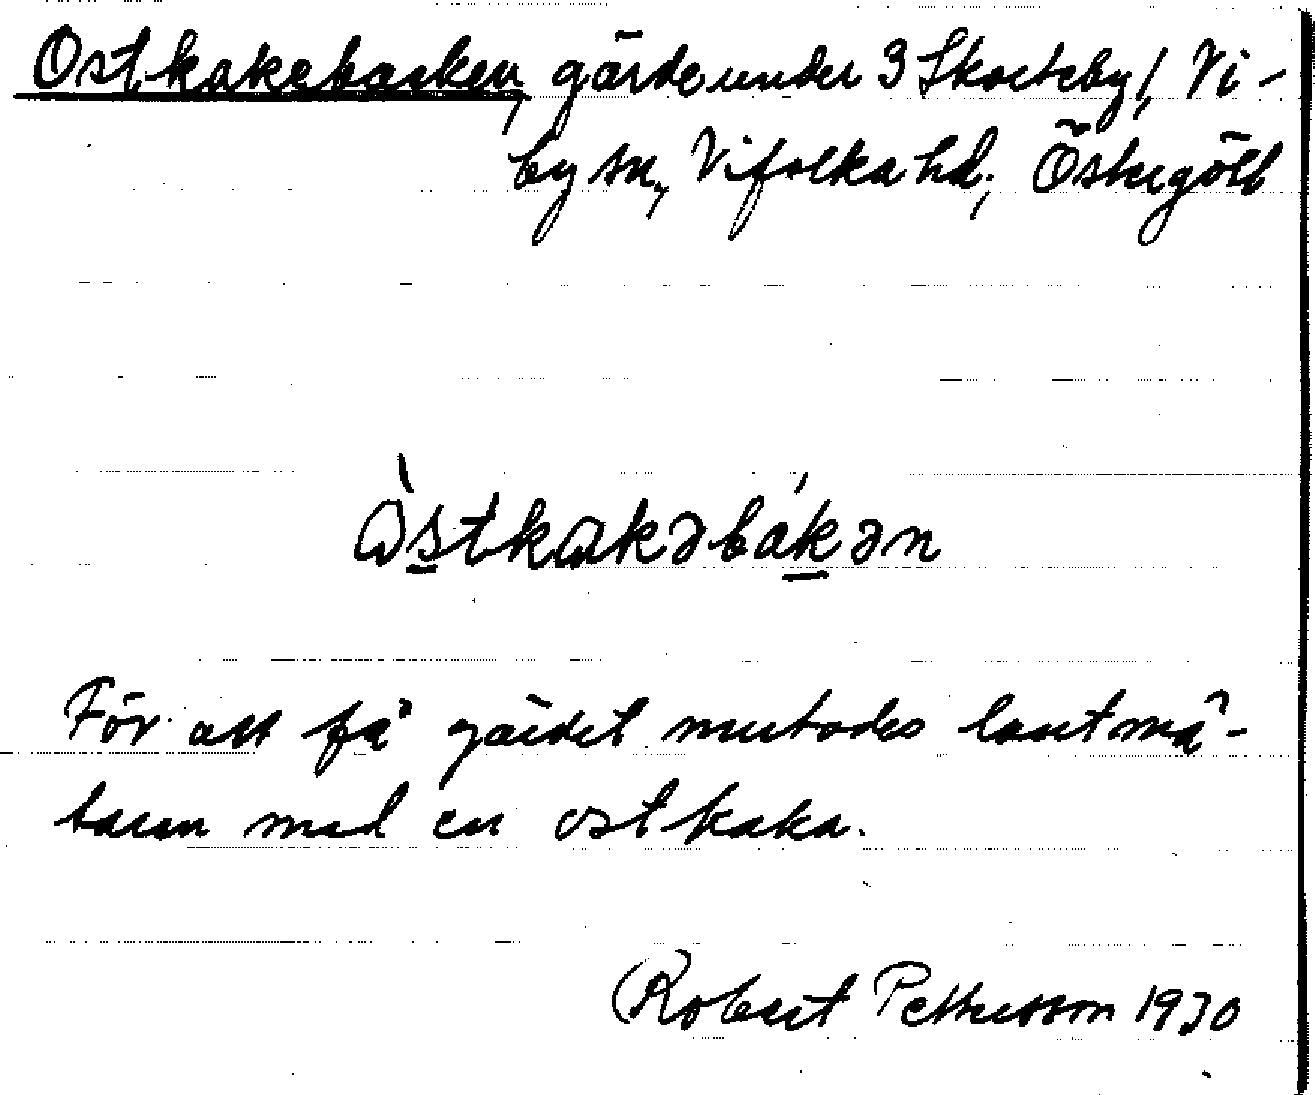 Ostkakebacken, gärde under 3 Skorteby, Vi-
by sn, Vifolka hd, Östergötl
Òstkakəbákən
För att få gärdet mutades lantmä-
taren med en ostkaka.
Robert Pettersson 1930